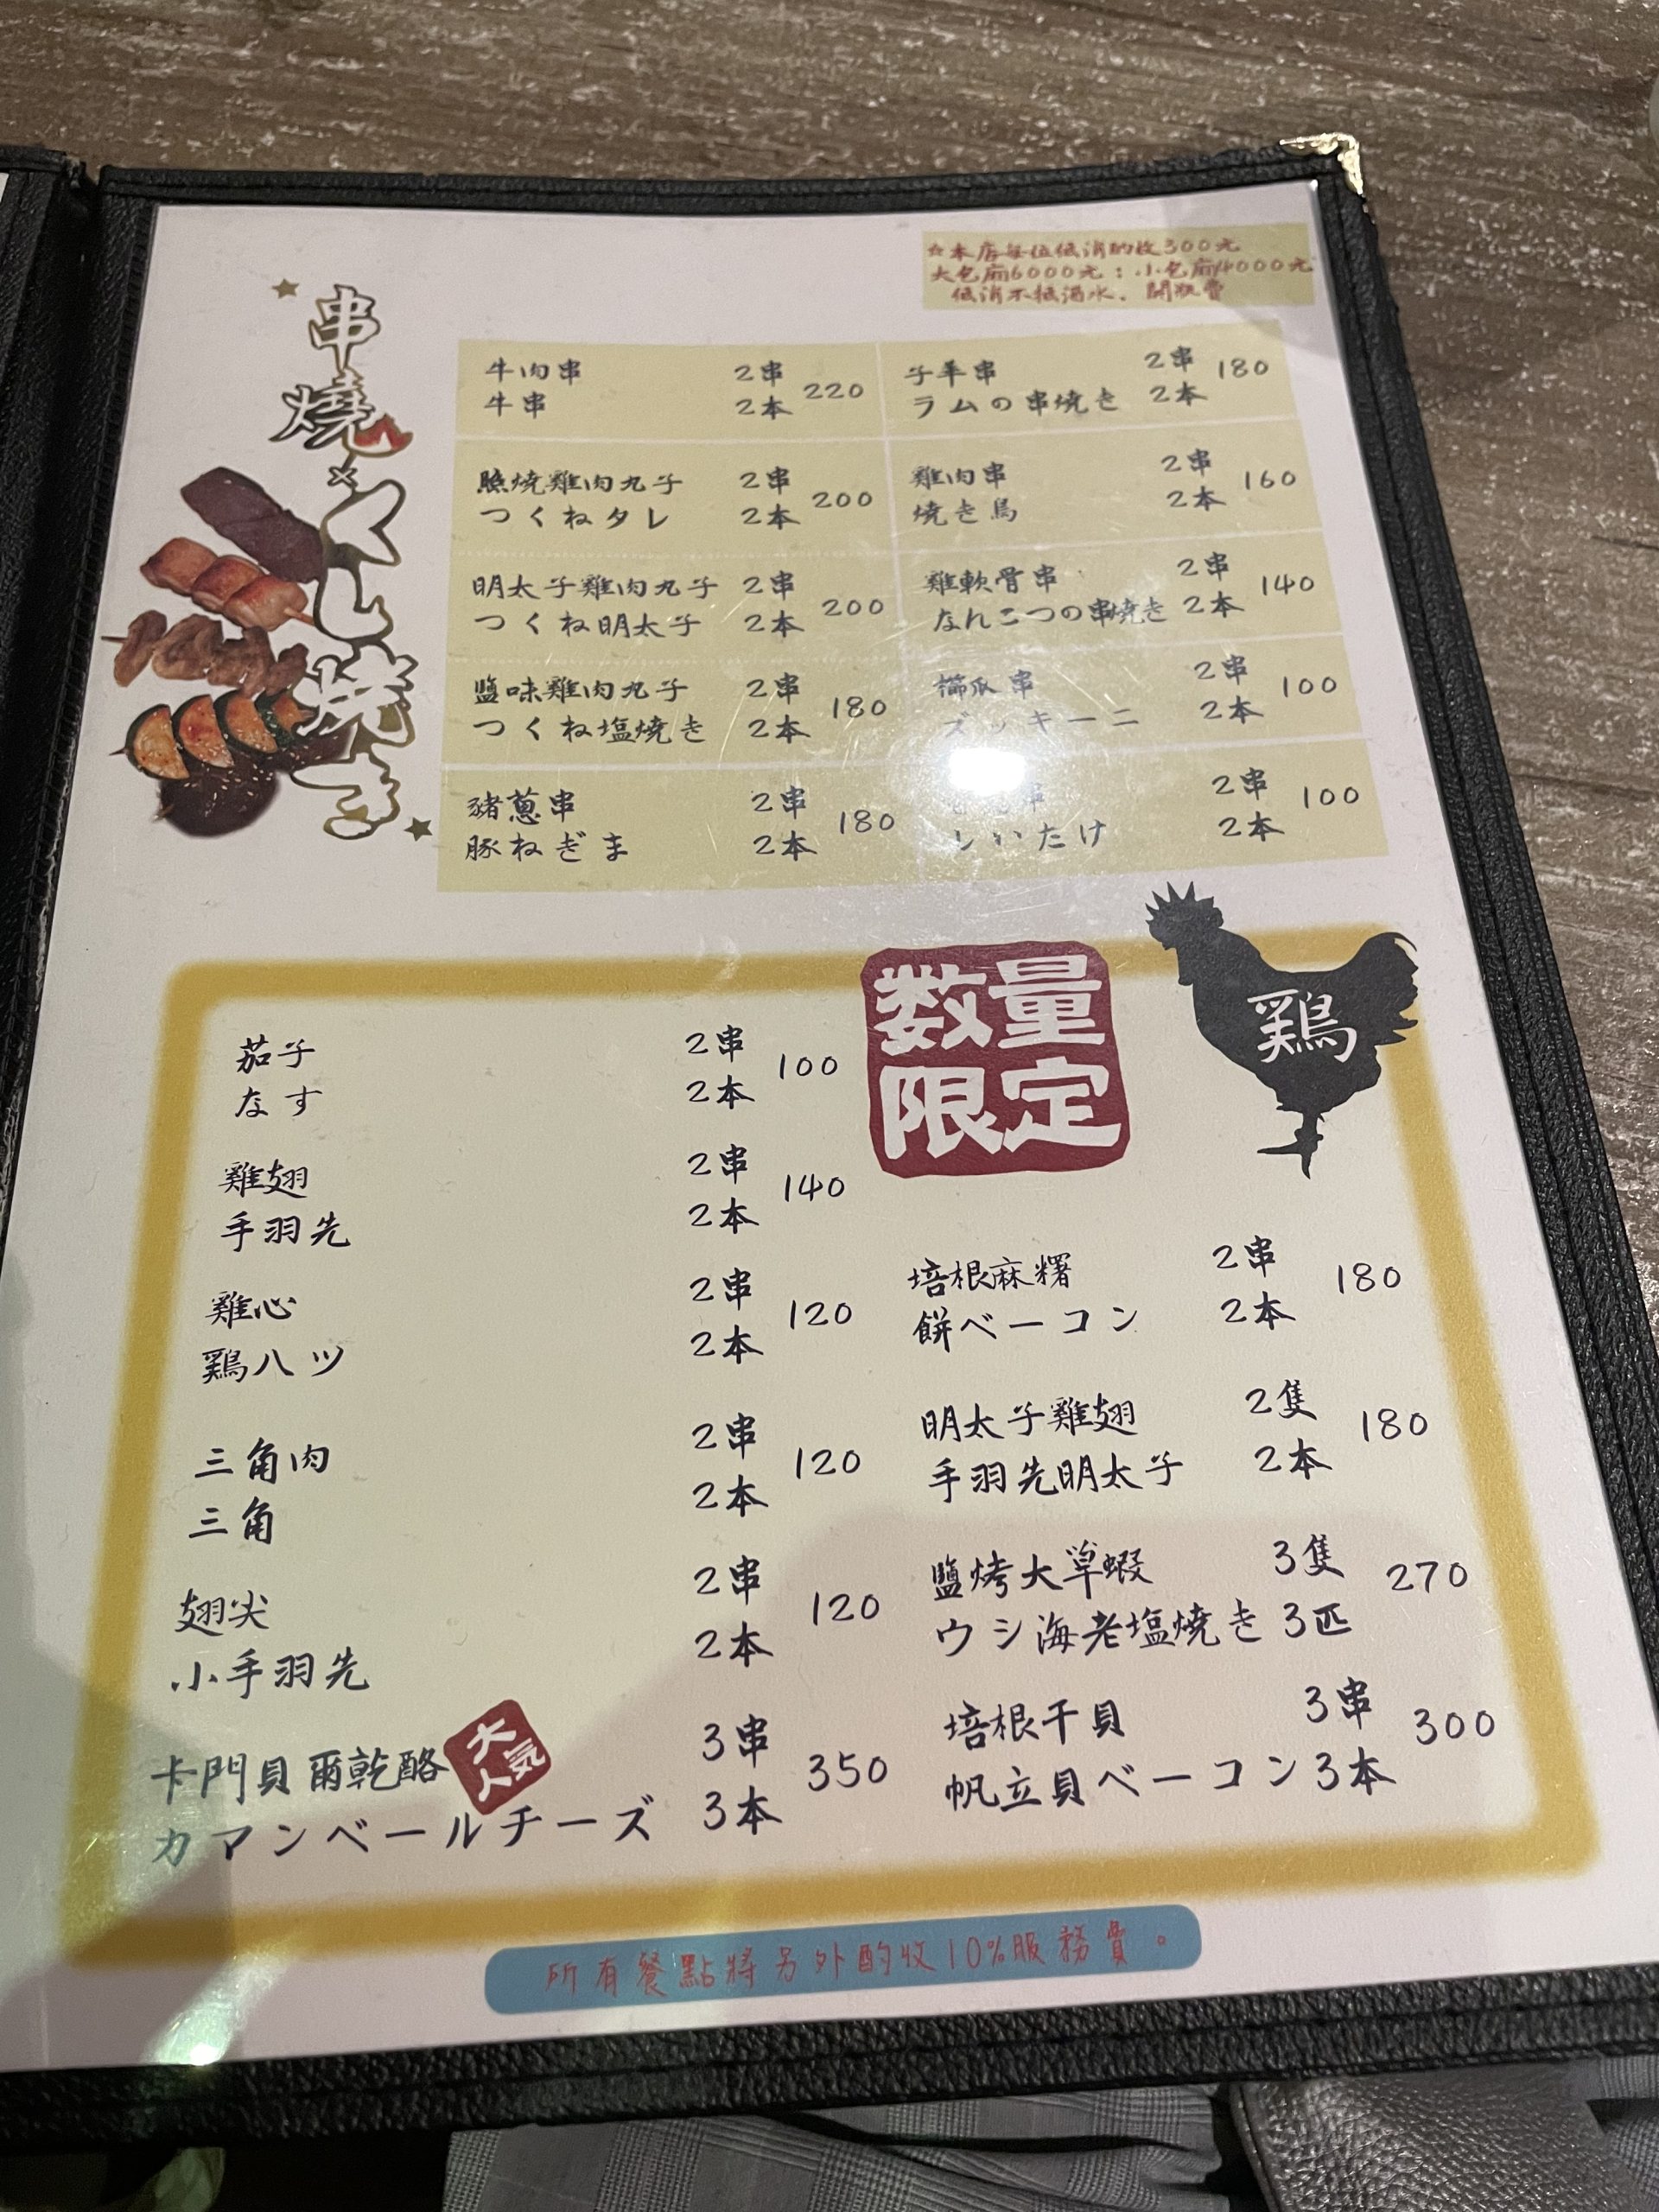 ☆本店每位低消酌收300元
大包廂6000元：小包廂4000元
低消不抵酒水、開瓶費
串燒×くし焼き
牛肉串 2串 220
牛串 2本
照燒雞肉丸子 2串 200
つくねタレ 2本
明太子雞肉丸子 2串 200
つくね明太子 2本
鹽味雞肉丸子 2串 180
つくね塩焼き 2本
豬蔥串 2串 180
豚ねぎま 2本
子羊串 2串 180
ラムの串焼き 2本
雞肉串 2串 160
焼き鳥 2本
雞軟骨串 2串 140
なんこつの串焼き 2本
櫛瓜串 2串 100
ズッキーニ 2本
串 2串 100
しいたけ 2本
数量
限定
鶏
茄子 2串 100
なす 2本
雞翅 2串 140
手羽先 2本
雞心 2串 120
鶏ハツ 2本
三角肉 2串 120
三角 2本
翅尖 2串 120
小手羽先 2本
卡門貝爾乾酪 3串 350
大人気
カマンベールチーズ 3本
培根麻糬 2串 180
餅ベーコン 2本
明太子雞翅 2隻 180
手羽先明太子 2本
鹽烤大草蝦 3隻 270
ウシ海老塩焼き 3匹
培根干貝 3串 300
帆立貝ベーコン 3本
所有餐點將另外酌收10%服務費。